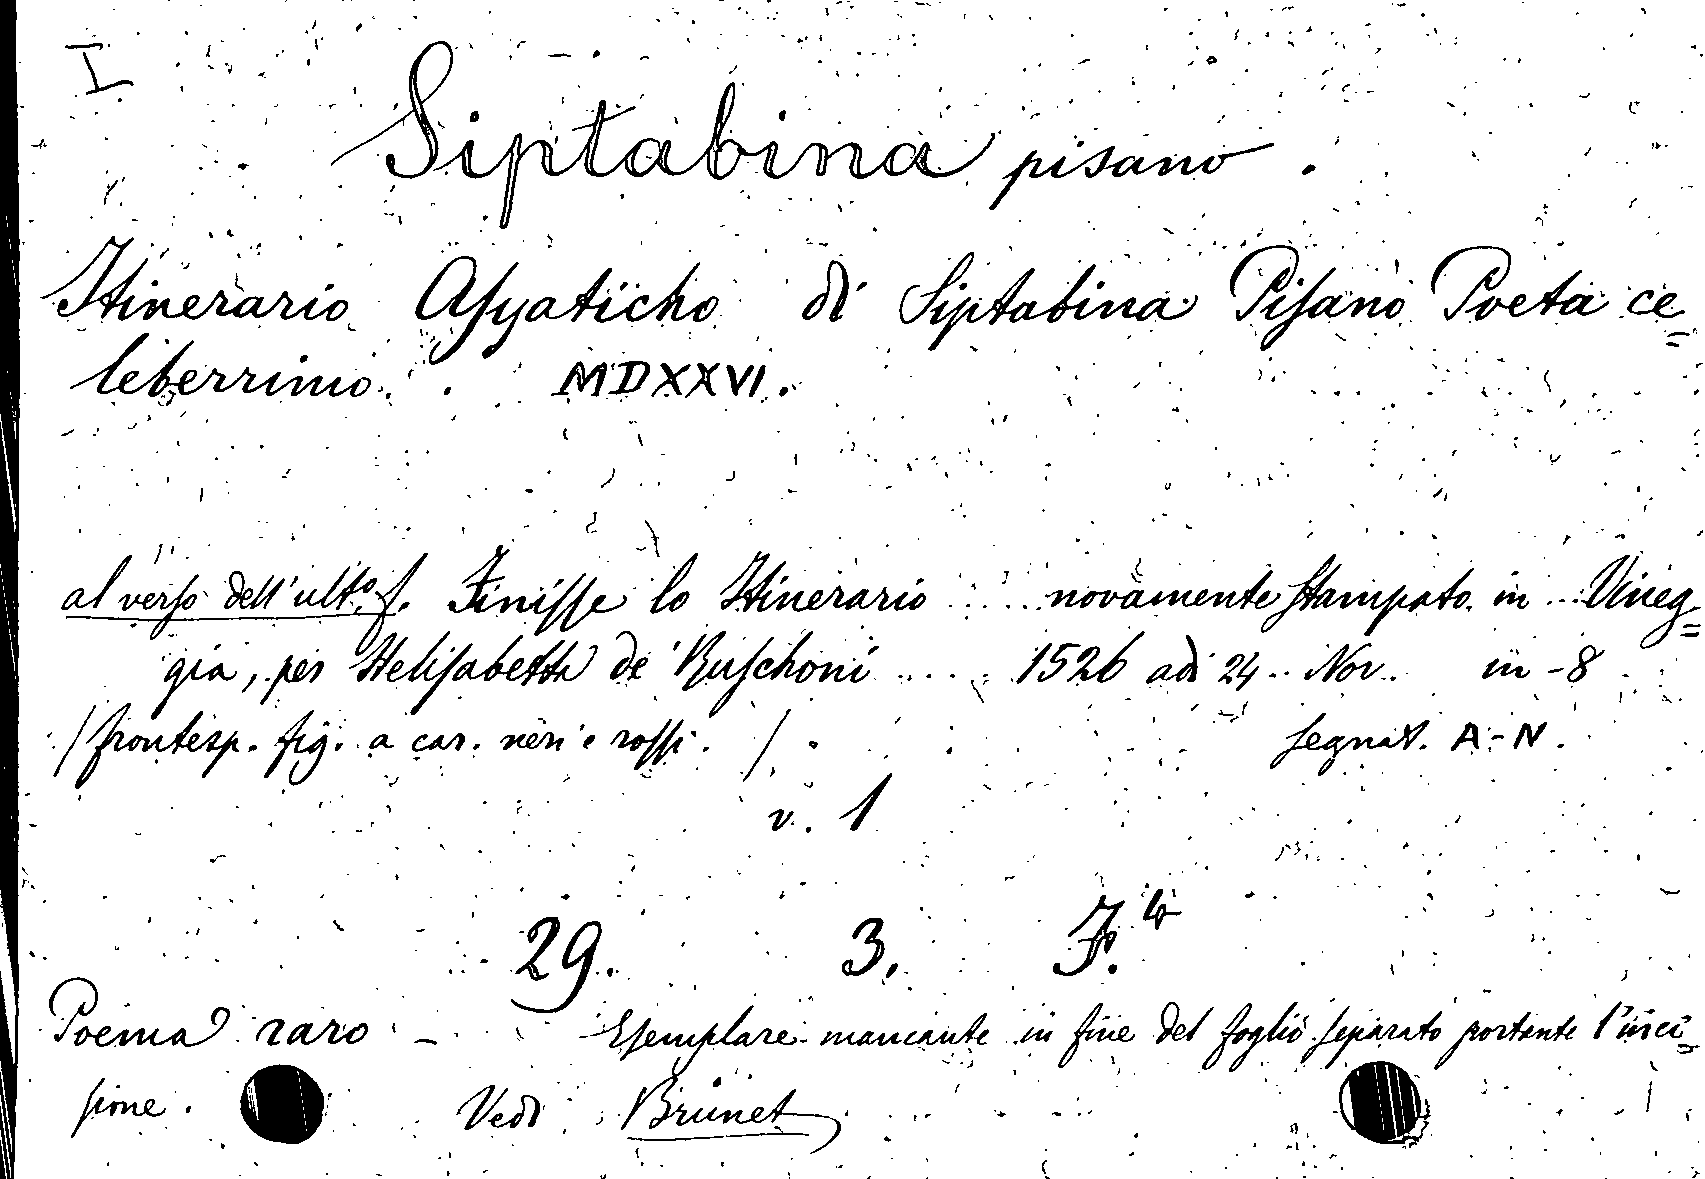 I
Siptabina pisano.
Itinerario Asyaticho di Siptabina Pisano Poeta ce=
leberrimo. MDXXVI.
al verso dell'ulto. f. Finisse lo Itinerario ..... novamente stampato in Vineg=
gia, per Helisabetta de Ruschoni .... 1526 adi 24 Nov. in-8
/frontesp. fig. a car. neri e rossi. /. segnat. A-N.
v. 1
29. 3. F. 4
Poema raro - Esemplare mancante in fine del foglio separato portante l'inci=
sione. Vedi Brunet